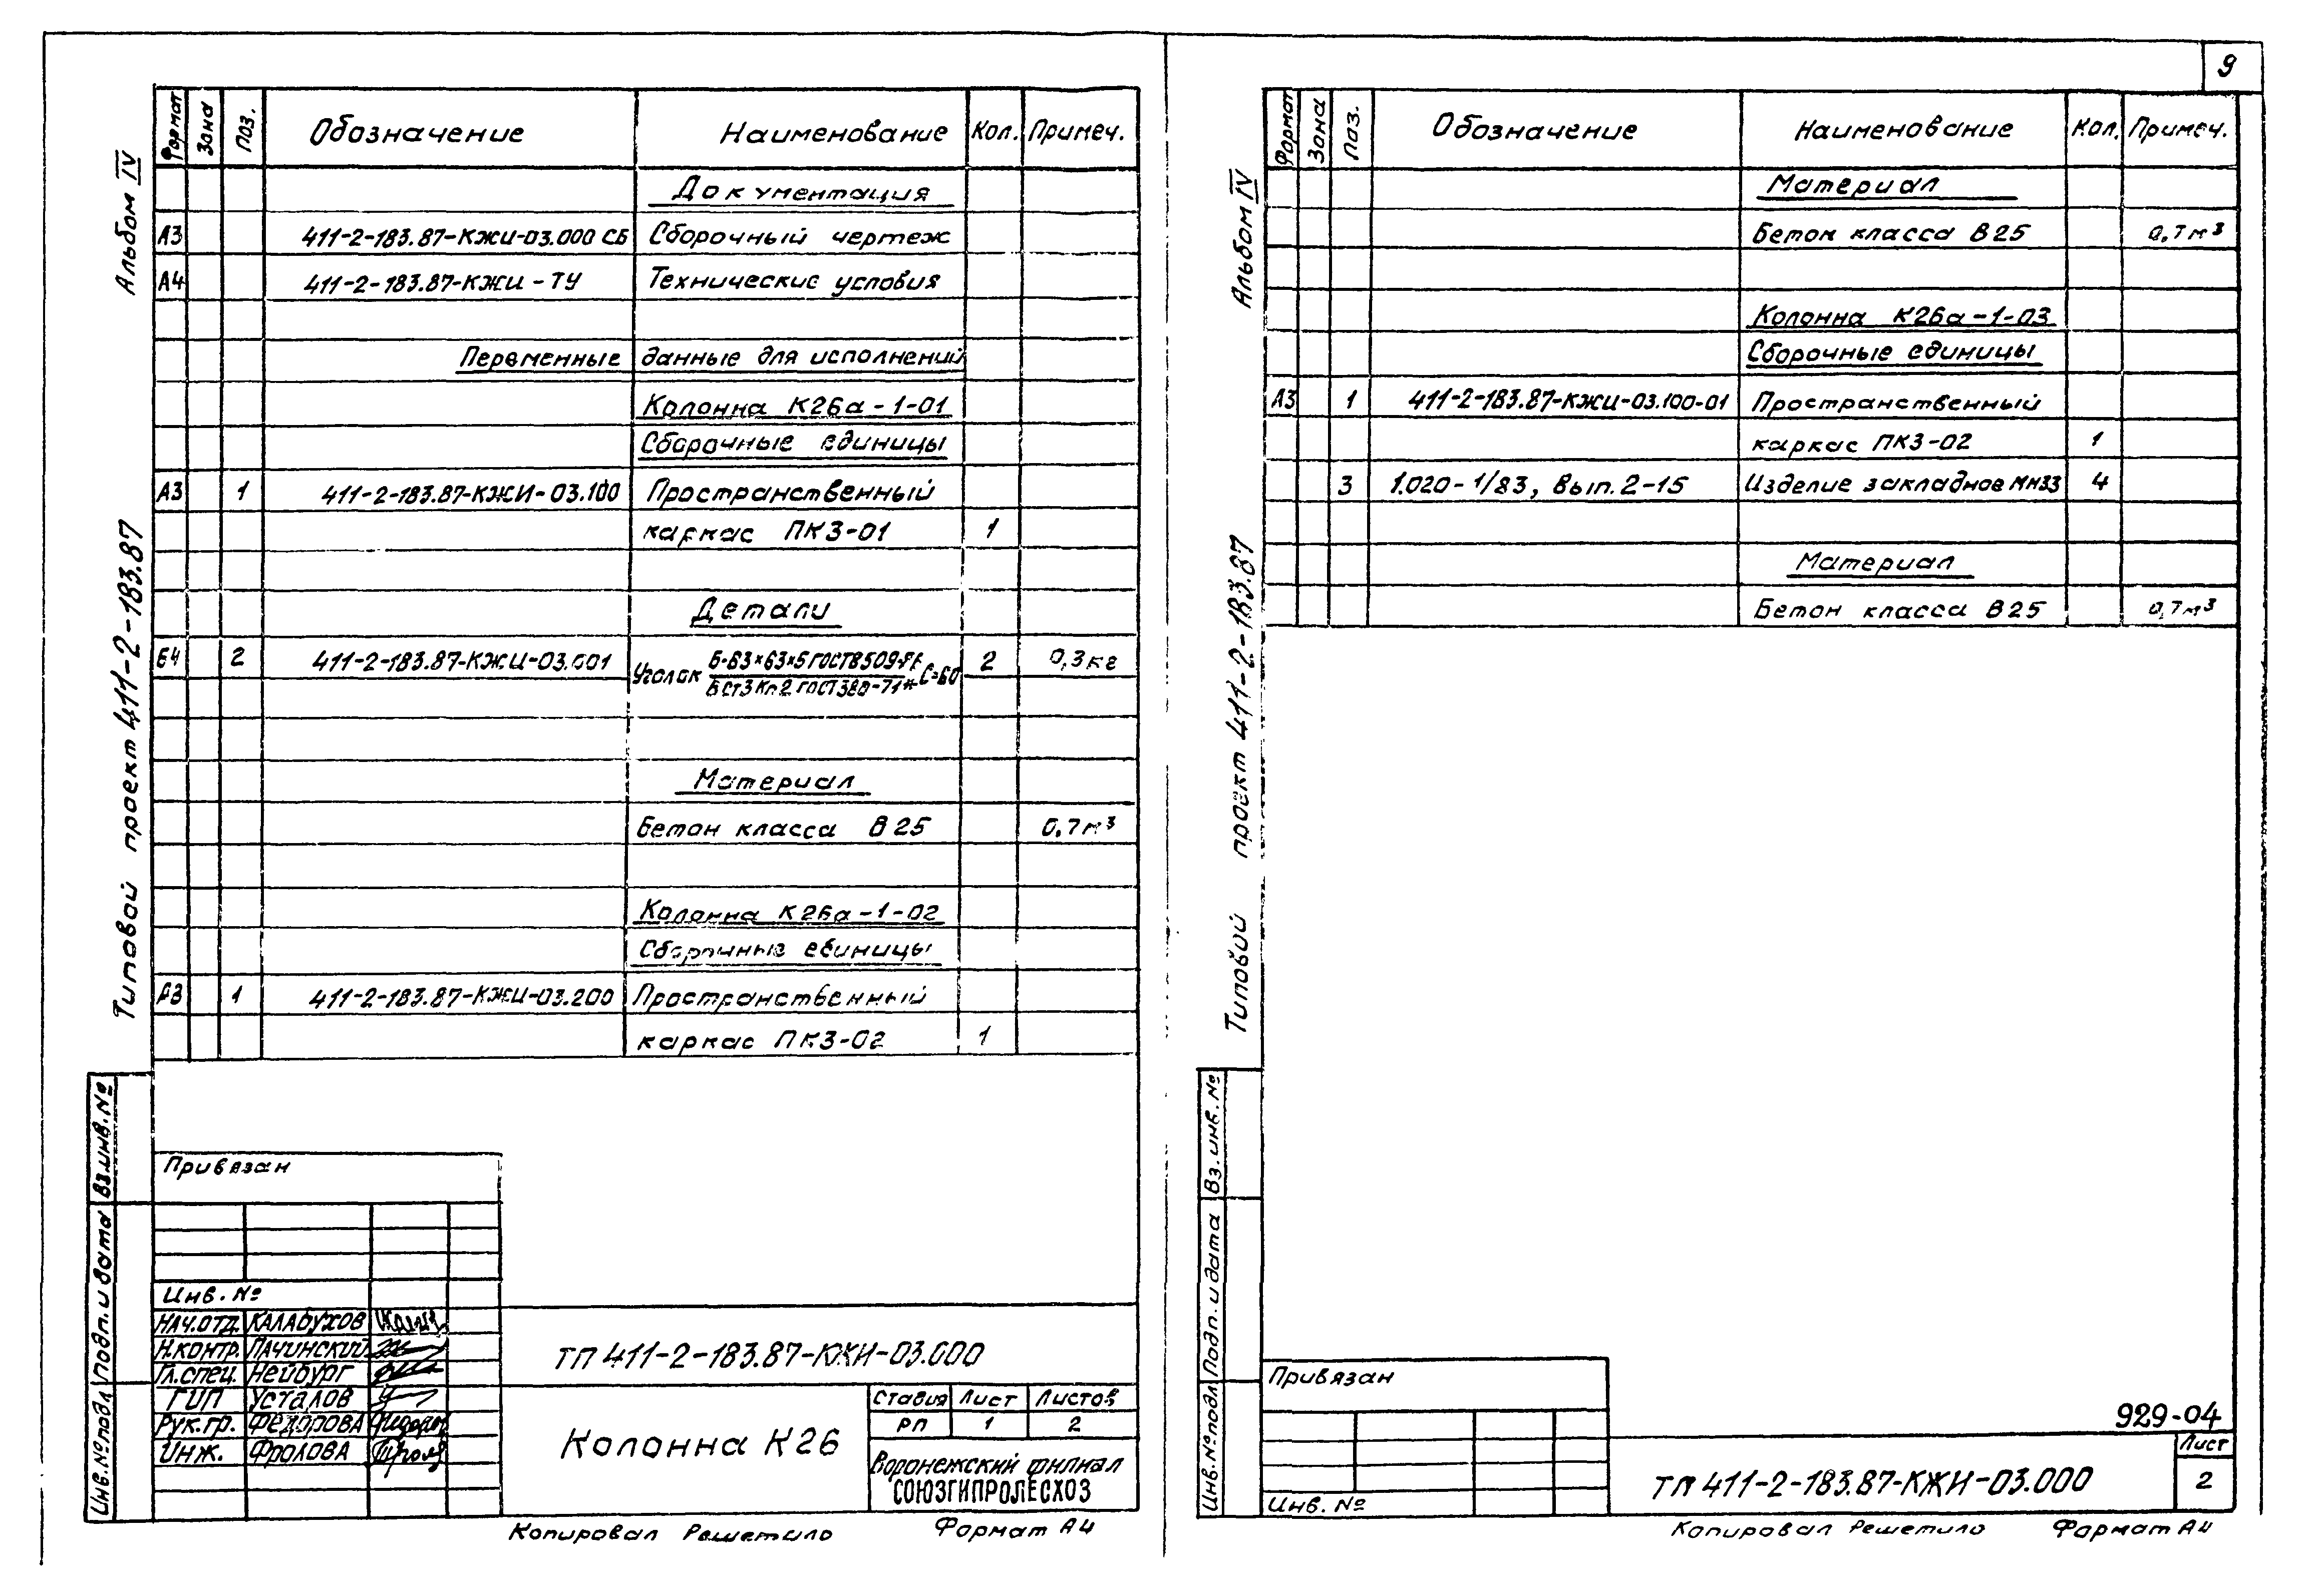 Альбом IV
Типовой проект 411-2-183.87
Формат Зона Поз. Обозначение Наименование Кол. Примеч.
Документация
А3 411-2-183.87-КЖИ-03.000 СБ Сборочный чертеж
А4 411-2-183.87-КЖИ-ТУ Технические условия
Переменные данные для исполнений
Колонна К26а-1-01
Сборочные единицы
А3 1 411-2-183.87-КЖИ-03.100 Пространственный
каркас ПК3-01 1
Детали
Б4 2 411-2-183.87-КЖИ-03.001 Уголок Б-63×63×5 ГОСТ 8509-86 2 0,3кг
ВСт3кп2 ГОСТ 380-71* ℓ=60
Материал
Бетон класса В25 0,7м³
Колонна К26а-1-02
Сборочные единицы
А3 1 411-2-183.87-КЖИ-03.200 Пространственный
каркас ПК3-02 1
Вз.инв.№
Подп. и дата
Инв.№подл
Привязан
Инв. №
Нач.отд. Калабухов
Н.контр. Пачинский
Гл.спец. Нейбург
ГИП Усталов
Рук.гр. Федорова
Инж. Фролова
ТП 411-2-183.87-КЖИ-03.000
Колонна К26
Стадия Лист Листов
РП 1 2
Воронежский филиал
СОЮЗГИПРОЛЕСХОЗ
Копировал Решетило Формат А4
9
Альбом IV
Типовой проект 411-2-183.87
Формат Зона Поз. Обозначение Наименование Кол. Примеч.
Материал
Бетон класса В25 0,7м³
Колонна К26а-1-03
Сборочные единицы
А3 1 411-2-183.87-КЖИ-03.100-01 Пространственный
каркас ПК3-02 1
3 1.020-1/83, Вып.2-15 Изделие закладное МН33 4
Материал
Бетон класса В25 0,7м³
Вз. инв. №
Подп. и дата
Инв.№подл
Привязан
Инв. №
929-04
ТП 411-2-183.87-КЖИ-03.000
Лист
2
Копировал Решетило Формат А4